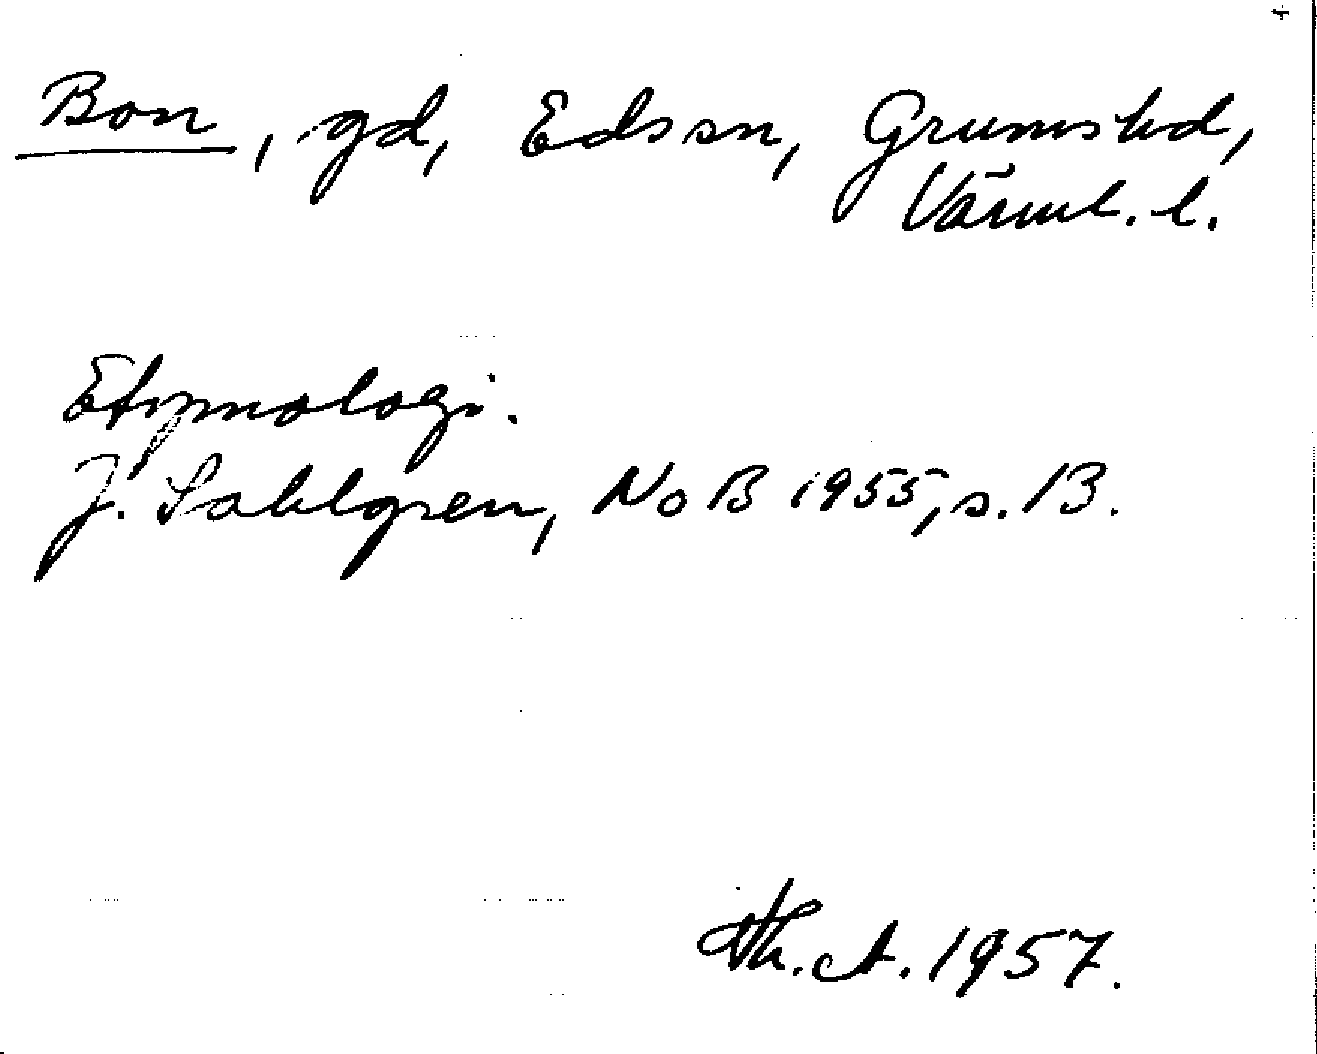 Bon, gd, Eds sn, Grums hd,
Värml. l.
Etymologi.
J. Sahlgren, NoB 1955, s. 13.
Th. A. 1957.